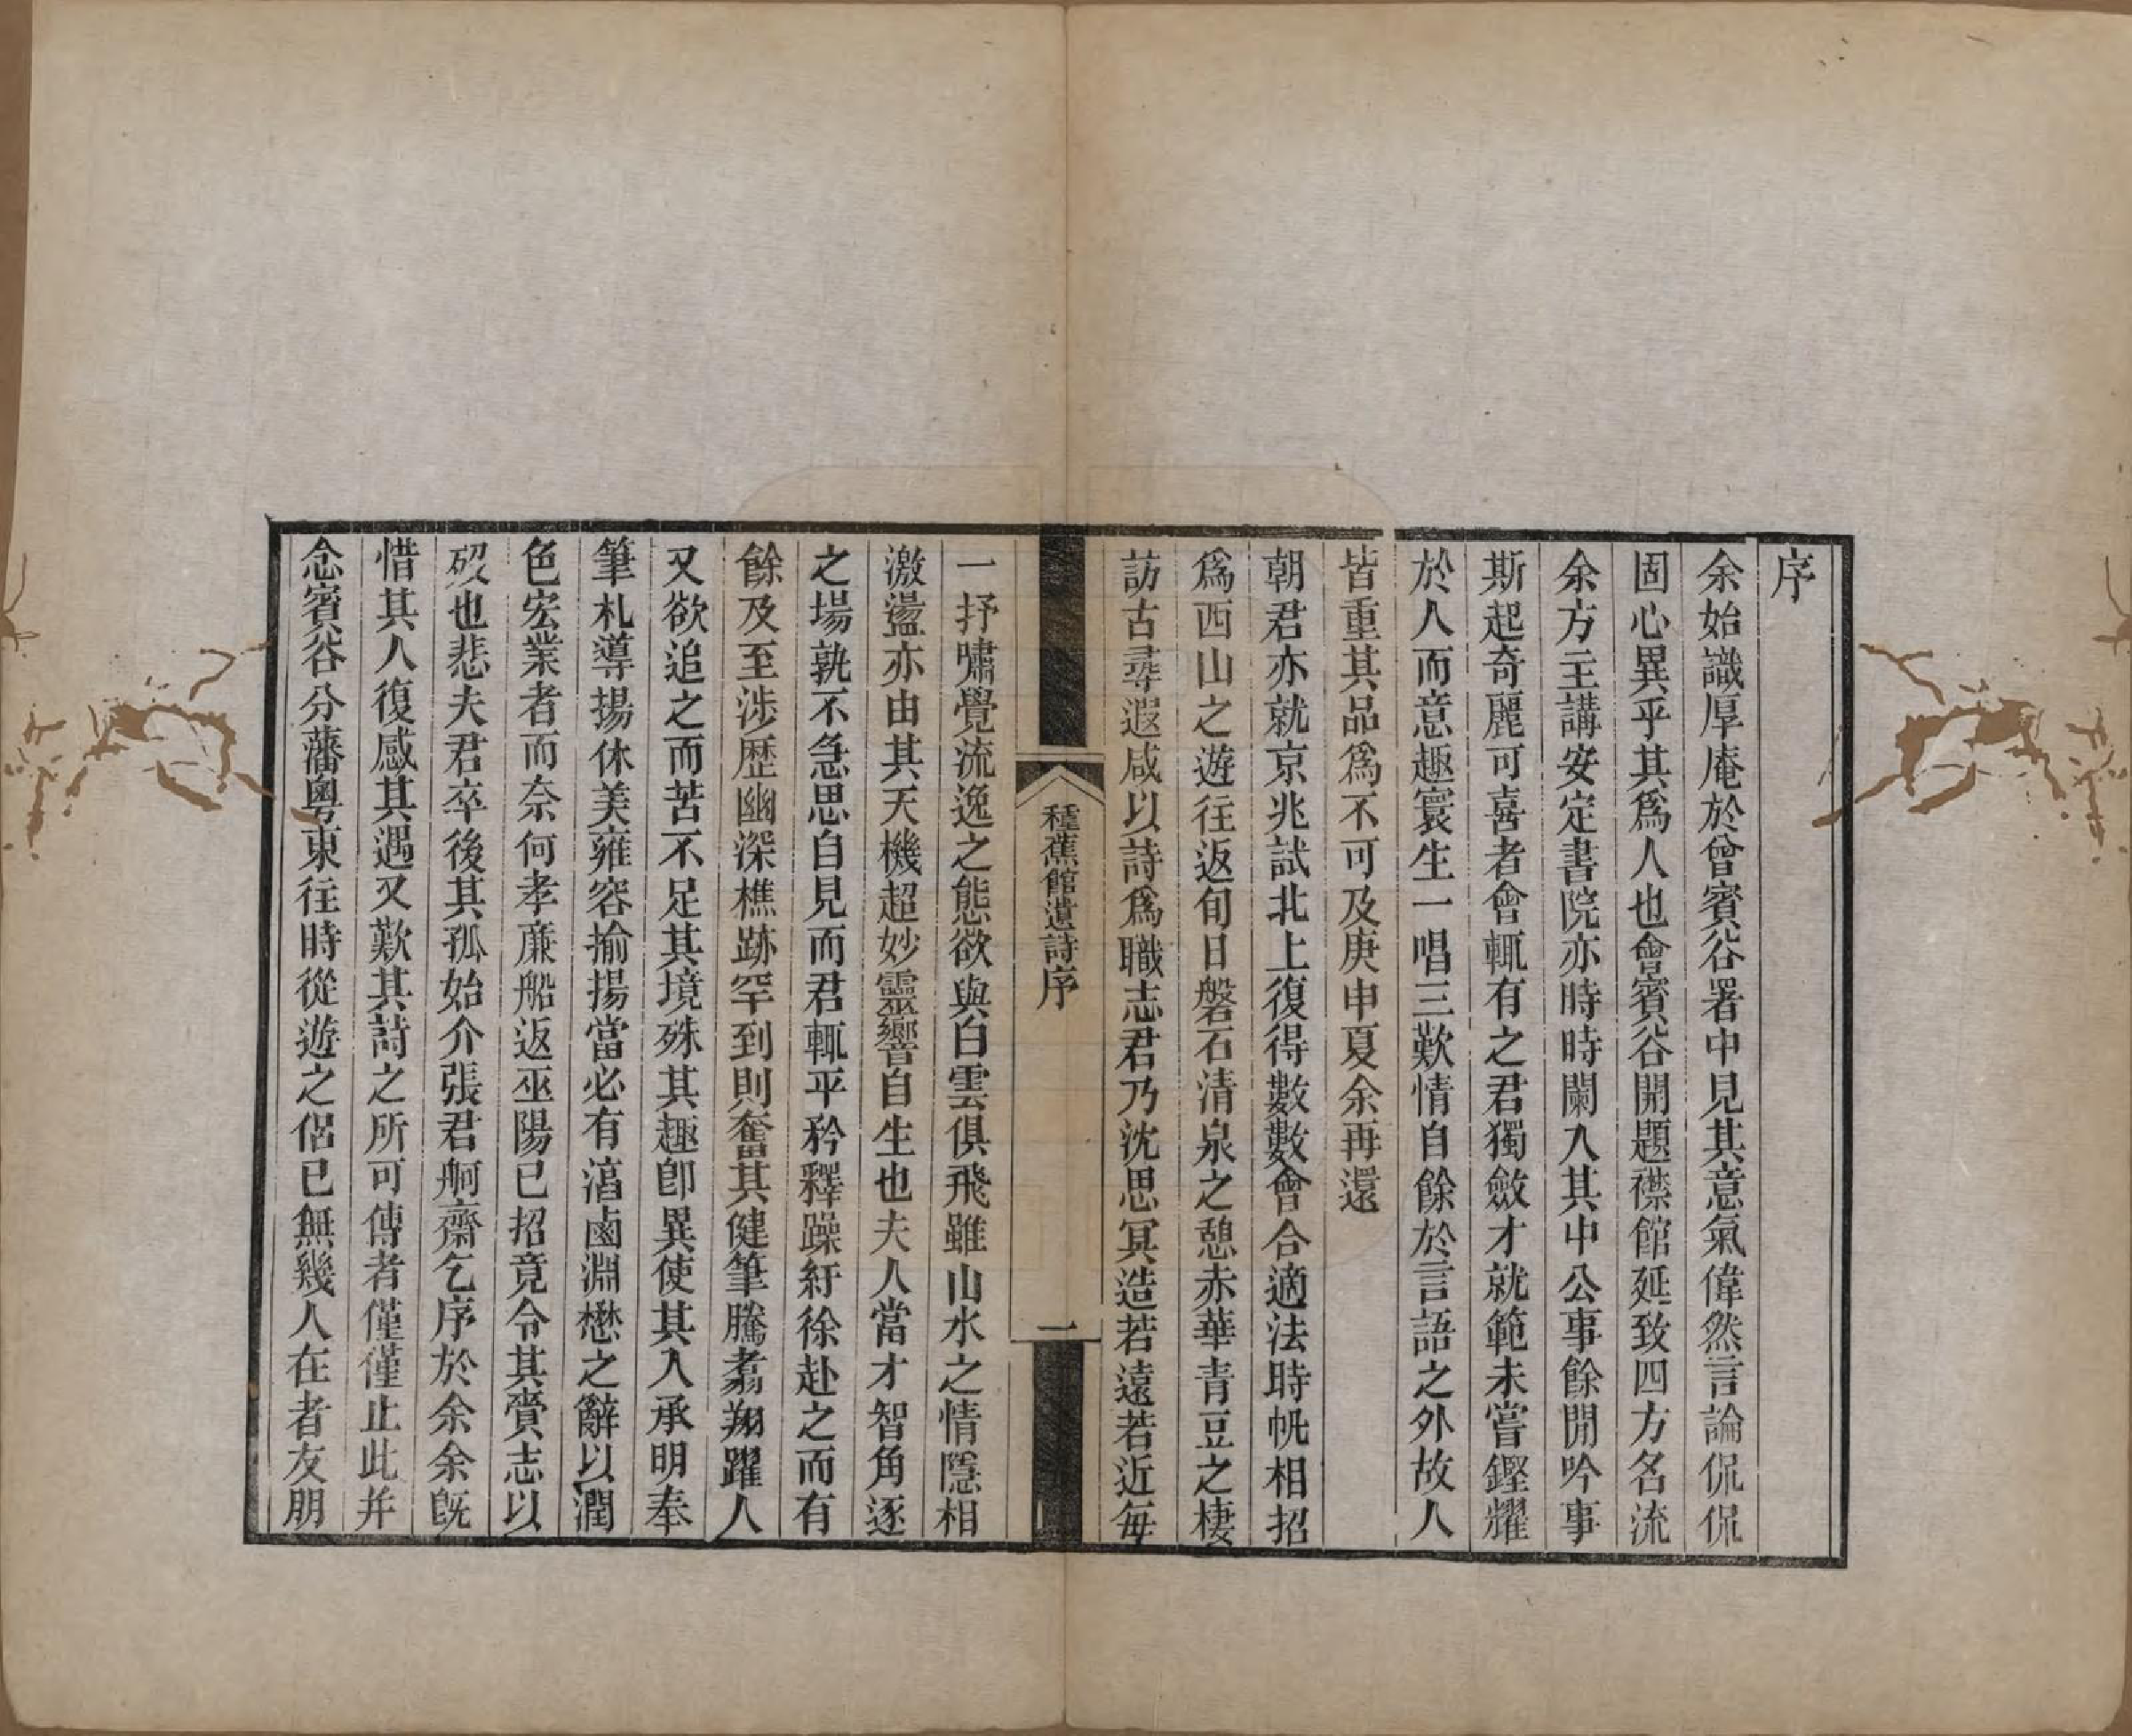 序
余始識厚庵於曾賓谷署中見其意氣偉然言論侃侃
固心異乎其爲人也會賓谷開題襟館延致四方名流
余方主講安定書院亦時時闌入其中公事餘閒吟事
斯起奇麗可喜者會輒有之君獨斂才就範未嘗鏗耀
於人而意趣寰生一唱三歎情自餘於言語之外故人
皆重其品爲不可及庚申夏余再還
朝君亦就京兆試北上復得數數會合適法時帆相招
爲西山之遊往返旬日磐石清泉之憩赤華青豆之棲
訪古尋遐咸以詩爲職志君乃沈思冥造若遠若近每
種蕉館遺詩序
一
一抒嘯覺流逸之態欲與白雲俱飛雖山水之情隱相
激盪亦由其天機超妙靈響自生也夫人當才智角逐
之場孰不急思自見而君輒平矜釋躁紆徐赴之而有
餘及至涉歷幽深樵跡罕到則奮其健筆騰翥翔躍人
又欲追之而苦不足其境殊其趣卽異使其入承明奉
筆札導揚休美雍容揄揚當必有滀鹵淵懋之辭以潤
色宏業者而奈何孝廉船返巫陽已招竟令其賫志以
歿也悲夫君卒後其孤始介張君舸齋乞序於余余旣
惜其人復感其遇又歎其詩之所可傳者僅僅止此并
念賓谷分藩粵東往時從遊之侶已無幾人在者友朋